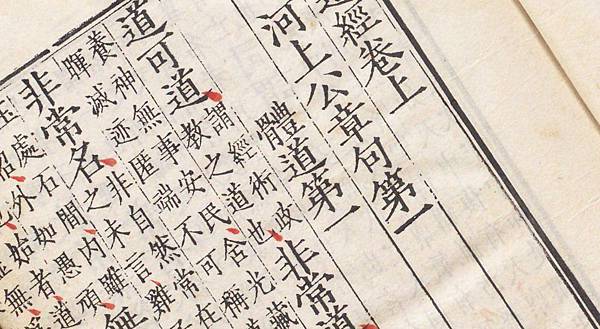 經卷上
河上公章句第一
體道第一
道可道
謂經術政
教之道也
非常道
養神無事安民含光藏
暉滅迹匿端不可稱
非常名
非自然常在
處石間內雖
外如愚頑
無
始
無者道